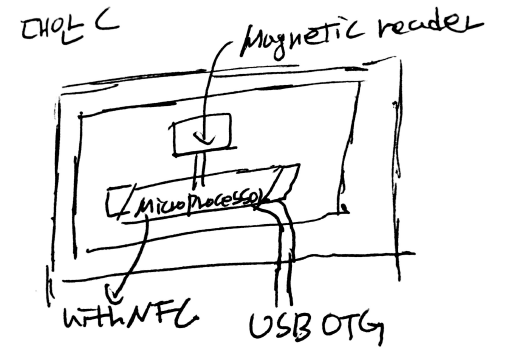 대안 C
Magnetic reader
Microprocessor
With NFC
USB OTG